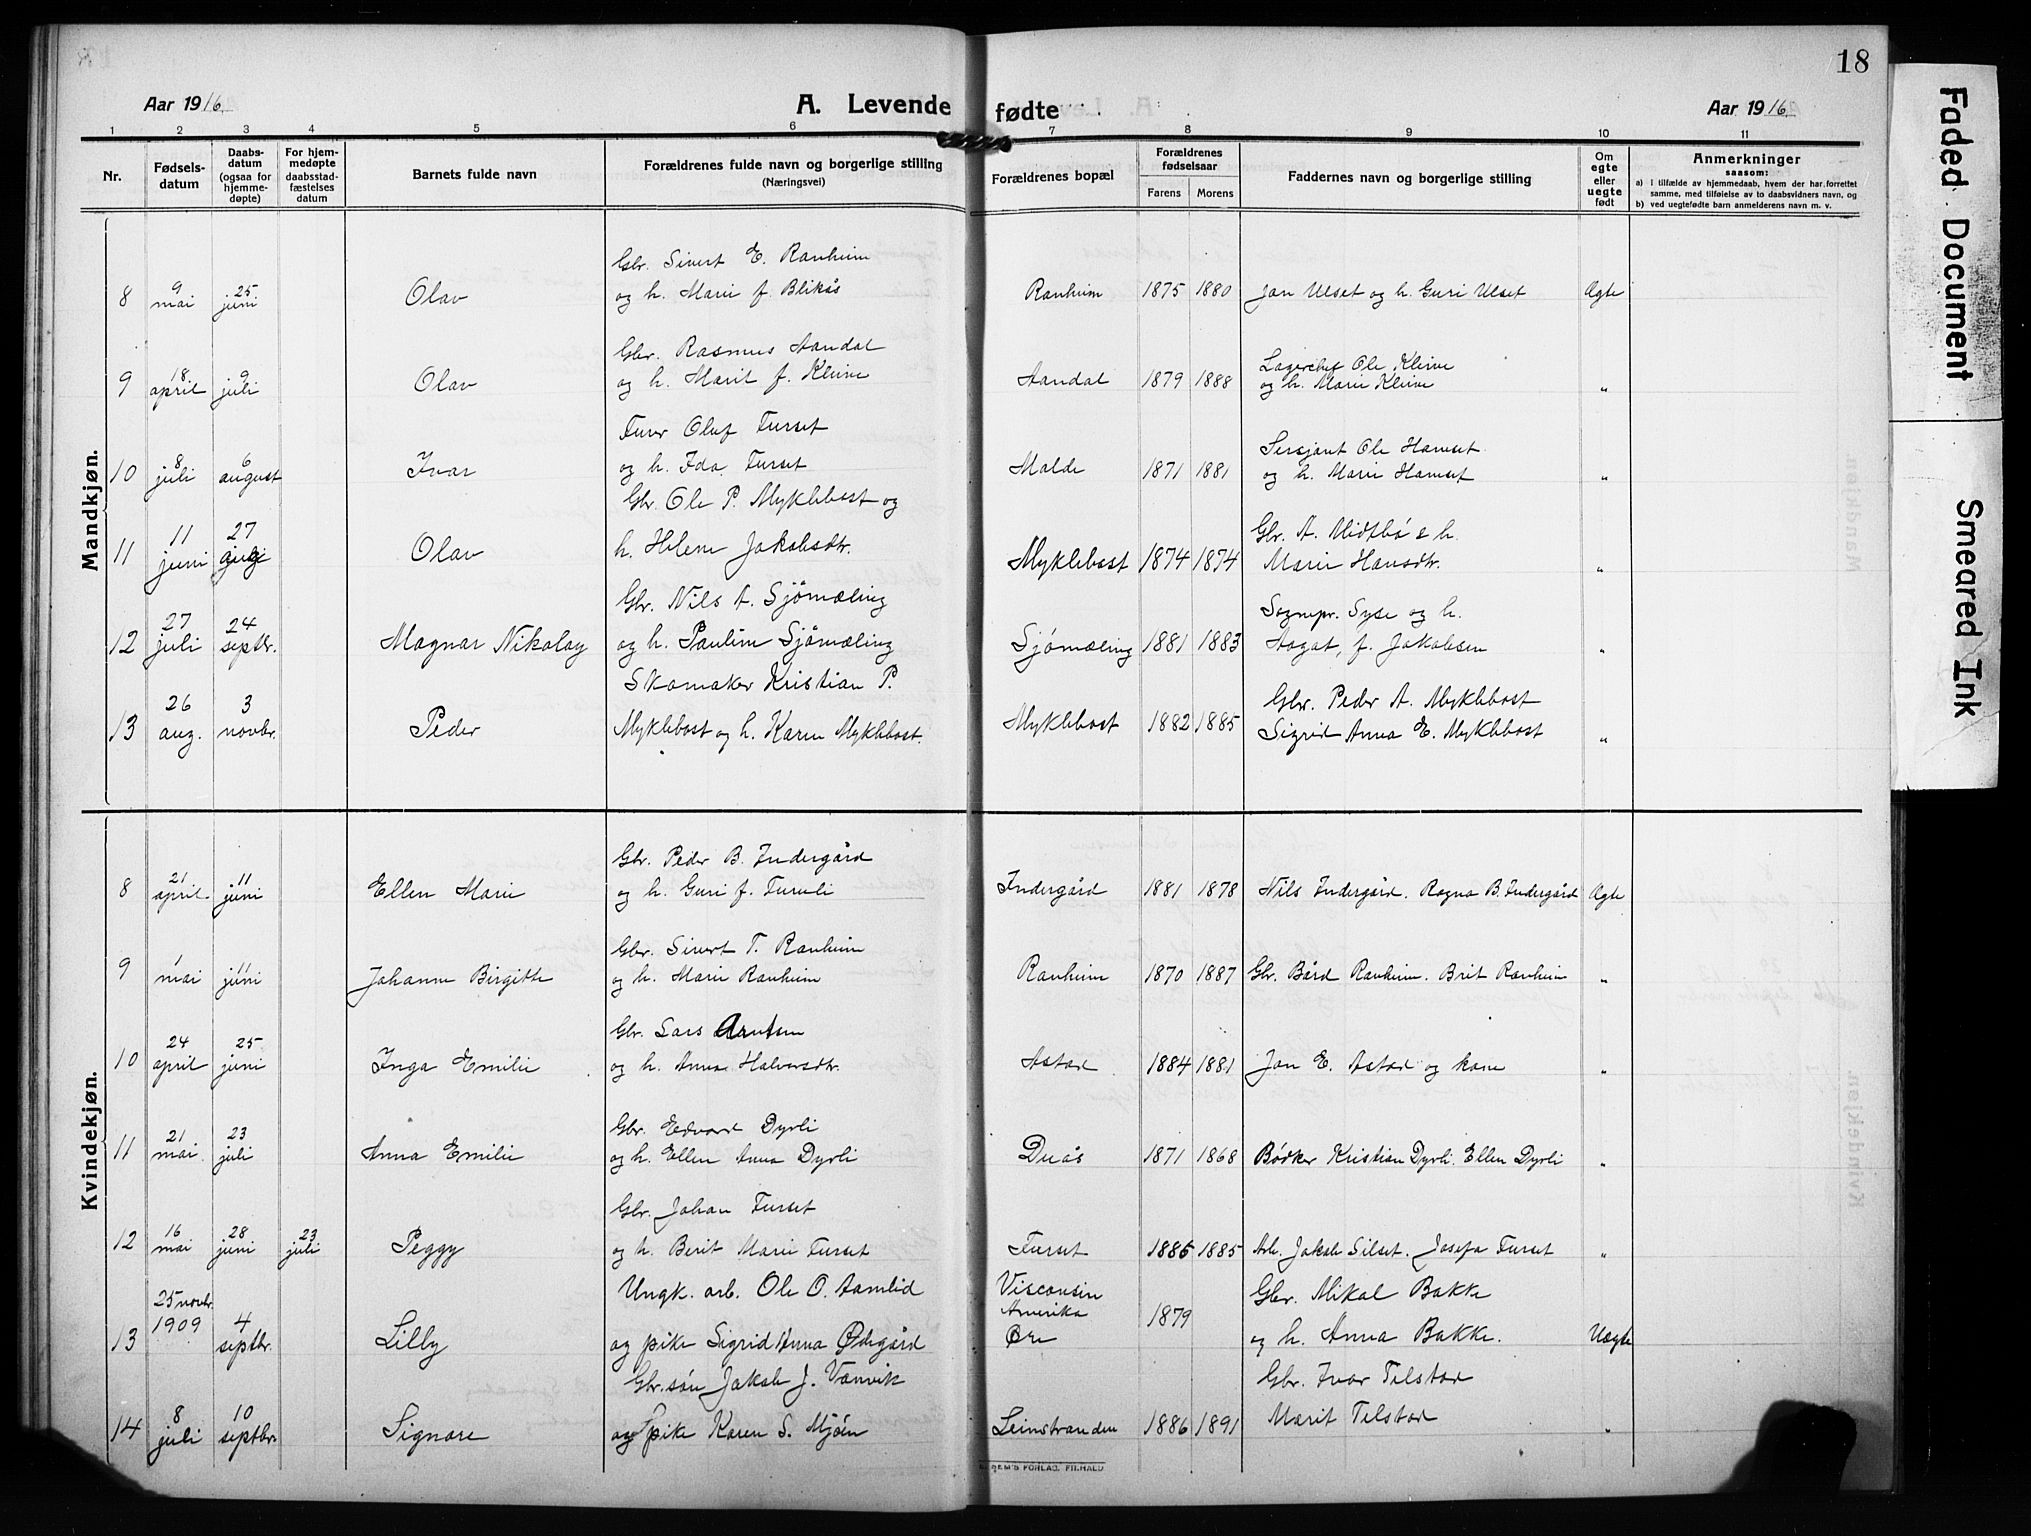 18
Aar 1916
A. Levende fødte
Aar 1916
1 2 3 4 5 6 7 8 9 10 11
Nr.
Fødsels-
datum
Daabs-
datum
(ogsaa for
hjemme-
døpte)
For hjem-
medøpte
daabsstad-
fæstelses
datum
Barnets fulde navn
Forældrenes fulde navn og borgerlige stilling
(Næringsvei)
Forældrenes bopæl
Forældrenes
fødselsaar
Farens Morens
Faddernes navn og borgerlige stilling
Om
egte
eller
uegte
født
Anmerkninger
saasom:
a) i tilfælde av hjemmedaab, hvem der har forrettet
samme, med tilføielse av to daabsvidners navn, og
b) ved uegtefødte barn anmelderens navn m. v.
Mandkjøn.
Gbr. Sivert E. Ranheim
8 9 mai 25 juni Olav og h. Marie f. Blikås Ranheim 1875 1880 Jon Ulset og h. Guri Ulset Ægte
Gbr. Rasmus Aandal
Lagerchef Ole Kleive
9 18 april 9 juli Olav og h. Marit f. Kleive Aandal 1879 1888 og h. Marie Kleive "
Furer Oluf Furset
Sersjant Ole Hamset
10 8 juli 6 august Ivar og h. Ida Furset Molde 1871 1881 og h. Marie Hamset "
Gbr. Ole P. Myklebost og
Gbr. A. Midtbö & h.
11 11 juni 27 Olav h. Helene Jakobsdtr. Myklebost 1874 1874 Marie Hansdtr. "
Gbr. Nils A. Sjömæling
Sognepr. Syse og h.
12 27 juli 24 septbr. Magnar Nikolay og h. Pauline Sjömæling Sjömæling 1881 1883 Aagat, f. Jakobsen "
Skomaker Kristian P.
Gbr. Peder A. Myklebost
13 26 aug. 3 novbr. Peder Myklebost og h. Karen Myklebost. Myklebost 1882 1885 Sigrid Anna E. Myklebost "
Kvindekjøn.
Gbr. Peder B. Indergård
8 21 april 11 juni Ellen Marie og h. Guri f. Furuli Indergård 1881 1878 Nils Indergård. Ragna B. Indergård Ægte
Gbr. Sivert T. Ranheim
9 1 mai 11 juni Johanne Birgitte og h. Marie Ranheim Ranheim 1870 1887 Gbr. Bård Ranheim. Brit Ranheim "
Gbr. Lars Arntsen
10 24 april 25 juni Inga Emilie og h. Anna Halvorsdtr. Astad 1884 1881 Jon E. Astad og kone "
Gbr. Edvard Dyrli
11 21 mai 23 juli Anna Emilie og h. Ellen Anna Dyrli Duås 1871 1868 Bödker Kristian Dyrli. Ellen Dyrli "
Gbr. Johan Furset
12 16 mai 28 juni 23 juli Peggy og h. Berit Marie Furset Furset 1885 1885 Arb. Jakob Silset. Josefa Furset "
Ungk. arb. Ole O. Aamlid Visconsin Amerika 1879 Gbr. Mikal Bakke
13 25 novbr. 1909 4 septbr. Lilly og pike Sigrid Anna Ødegård Öre og h. Anna Bakke. Uægte
Gbr.sön Jakob J. Vanvik
Gbr. Ivar Tilstad
14 8 juli 10 septbr. Signore og pike Karen S. Mjöen Leinstranden 1886 1891 Marit Tilstad "
FORLAG, FR.HALD
Faded Document
Smeared Ink